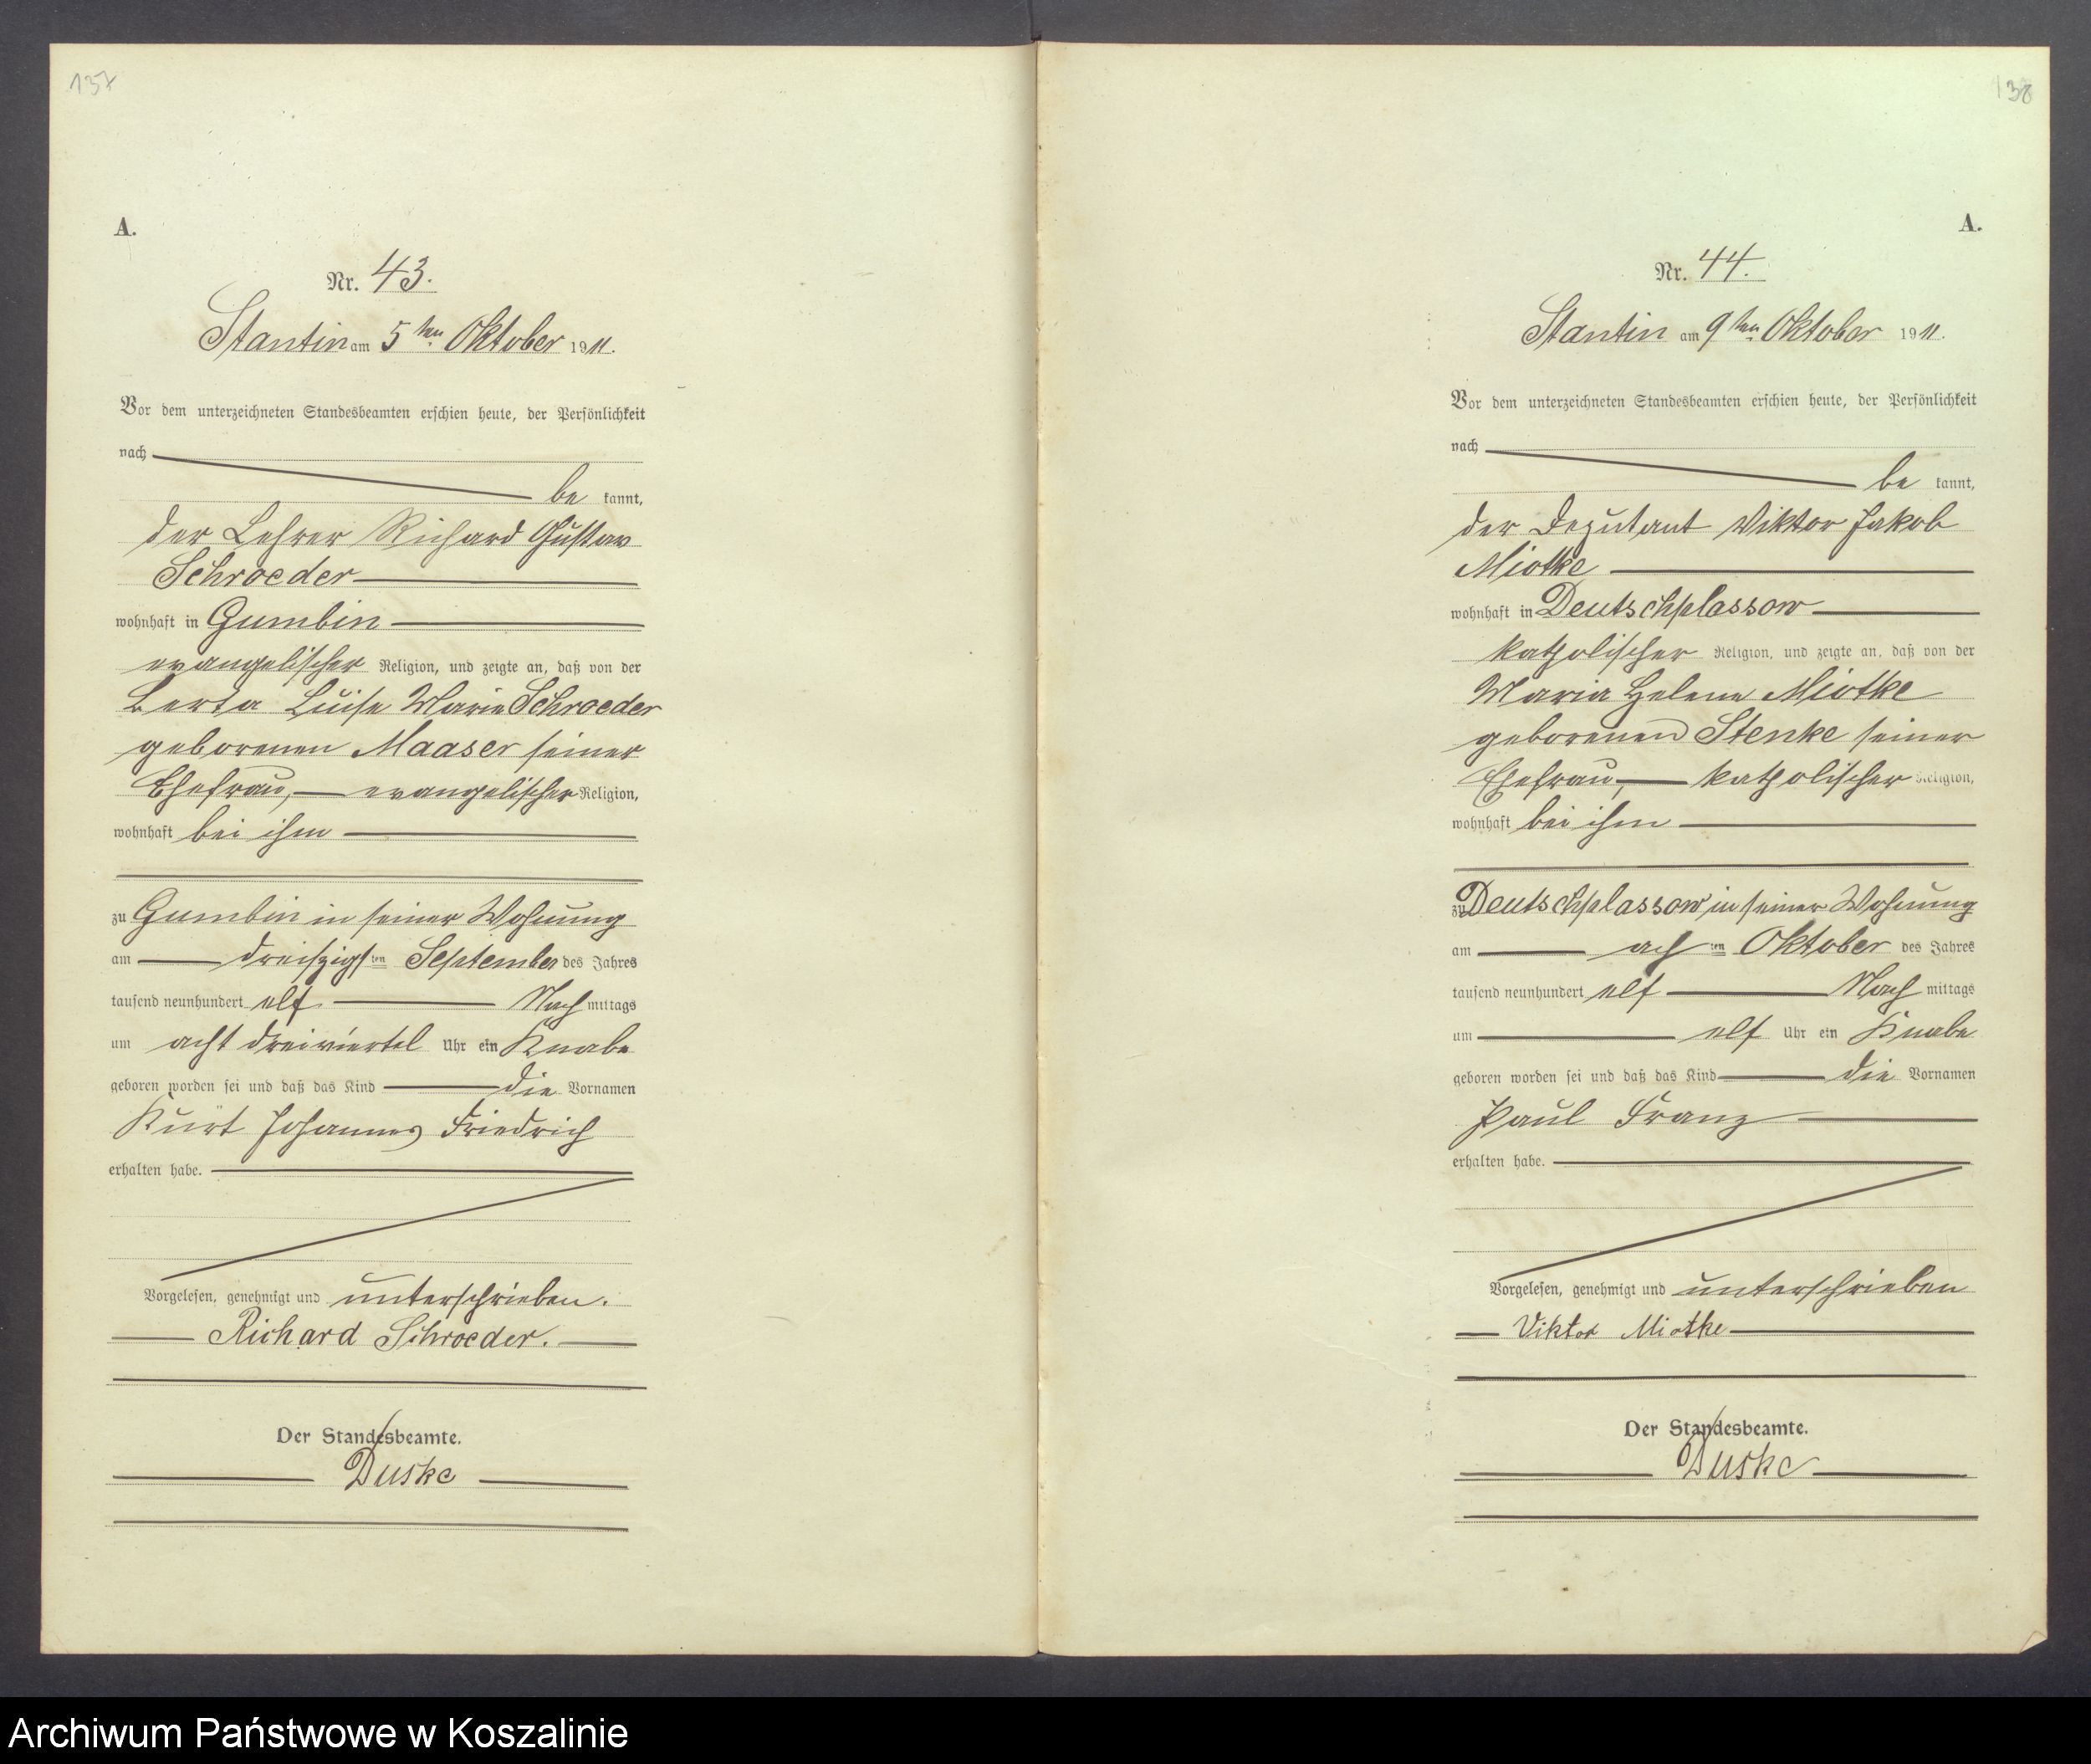 137
A.
Nr. 43.
Stantin am 5ten Oktober 1911.
Vor dem unterzeichneten Standesbeamten erschien heute, der Persönlichkeit
nach
be kannt,
der Lehrer Richard Gustav
Schroeder
wohnhaft in Gumbin
evangelischer Religion, und zeigte an, daß von der
Berta Luise Marie Schroeder
geborenen Maaser seiner
Ehefrau, evangelischer Religion,
wohnhaft bei ihm
zu Gumbin in seiner Wohnung
am dreiszigsten September des Jahres
tausend neunhundert elf Nach mittags
um acht dreiviertel Uhr ein Knabe
geboren worden sei und daß das Kind die Vornamen
Kurt Johannes Friedrich
erhalten habe.
Vorgelesen, genehmigt und unterschrieben.
Richard Schroeder.
Der Standesbeamte.
Duske
138
A.
Nr. 44.
Stantin am 9ten Oktober 1911.
Vor dem unterzeichneten Standesbeamten erschien heute, der Persönlichkeit
nach
be kannt,
der Deputant Viktor Jakob
Miotke
wohnhaft in Deutschplassow
katholischer Religion, und zeigte an, daß von der
Maria Helene Miotke
geborenen Stenke seiner
Ehefrau, katholischer Religion,
wohnhaft bei ihm
zu Deutschplassow in seiner Wohnung
am achten Oktober des Jahres
tausend neunhundert elf Nach mittags
um elf Uhr ein Knabe
geboren worden sei und daß das Kind die Vornamen
Paul Franz
erhalten habe.
Vorgelesen, genehmigt und unterschrieben
Viktor Miotke
Der Standesbeamte.
Duske
Archiwum Państwowe w Koszalinie